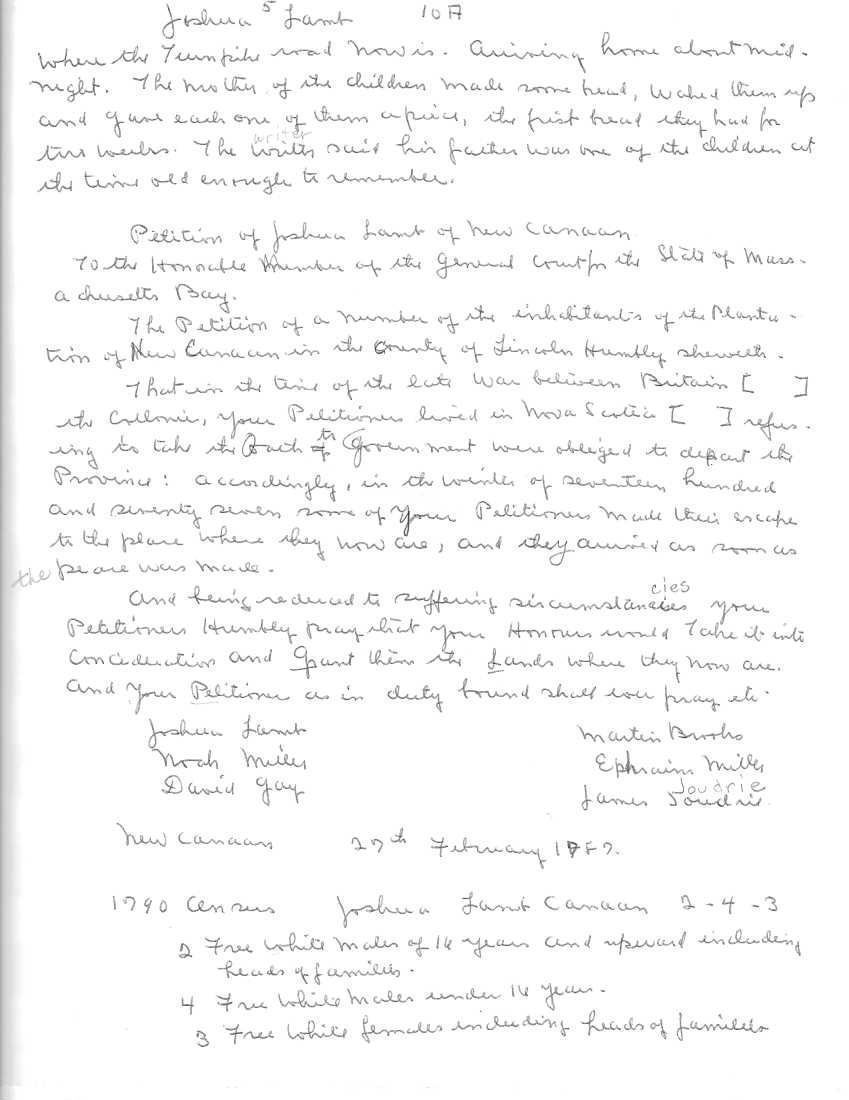 Joshua 5 Lamb 10A
where the Turnpike road now is. Arriving home about mid-
night. The mother of the children made some bread, waked them up
and gave each one of them a piece, the first bread they had for
two weeks. The writer said his father was one of the children at
writer
the time old enough to remember.
Petition of Joshua Lamb of New Canaan
To the Honorable Member of the General Court for the State of Mass-
achusetts Bay.
The Petition of a number of the inhabitants of the Planta-
tion of New Canaan in the County of Lincoln Humbly sheweth.
That in the time of the late War between Britain [ ]
the Collonies, your Petitioners lived in Nova Scotia [ ] refus-
ing to take the Oath to Government were obliged to depart the
Province: accordingly, in the winter of seventeen hundred
and seventy seven some of Your Petitioners made their escape
to the place where they now are, and they arrived as soon as
the peace was made.
And being reduced to suffering sircumstancies your
cies
Petitioners Humbly pray that your Honours would Take it into
Concideration and Grant them the Lands where they now are.
And Your Petitioner as in duty bound shall ever pray etc.
Joshua Lamb Martin Brooks
Noah Miller Ephraim Miller
David Gay James Joudrie
Joudrie
New Canaan 27th February 1787.
1790 Census Joshua Lamb Canaan 2-4-3
2 Free White Males of 16 years and upward including
heads of families.
4 Free White Males under 16 years.
3 Free White females including heads of families